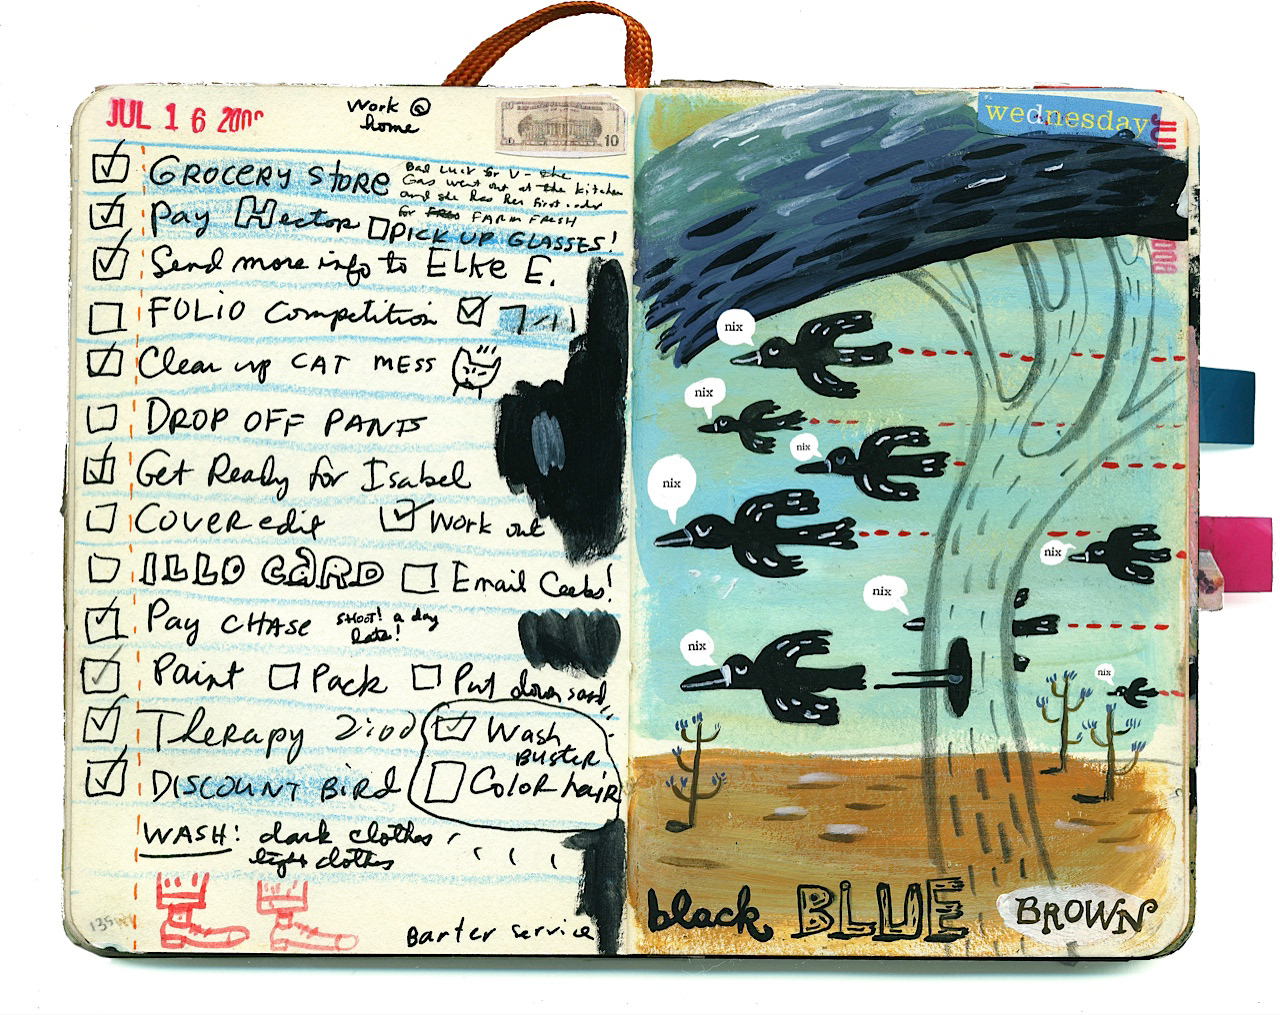 JUL 16 200
Work @
home
10
GROCERY STORE
Bad luck for V - she
Gas went out at the kitchen
and she has her first order
for FARM FRESH
Pay Hector
PICK UP GLASSES!
Send more info to ELKE E.
FOLIO Competition
7-11
Clean up CAT MESS
DROP OFF PANTS
Get Ready for Isabel
COVER edit
Work out
ILLO CARD
Email Ceebs!
Pay CHASE
SHOOT! a day
late!
Paint
Pack
Put down sand
Therapy 2:00
Wash
BUSTER
DISCOUNT BIRD
Color hair
WASH: dark clothes
light clothes
Barter service
wednesday
nix
nix
nix
nix
nix
nix
nix
nix
black BLUE BROWN